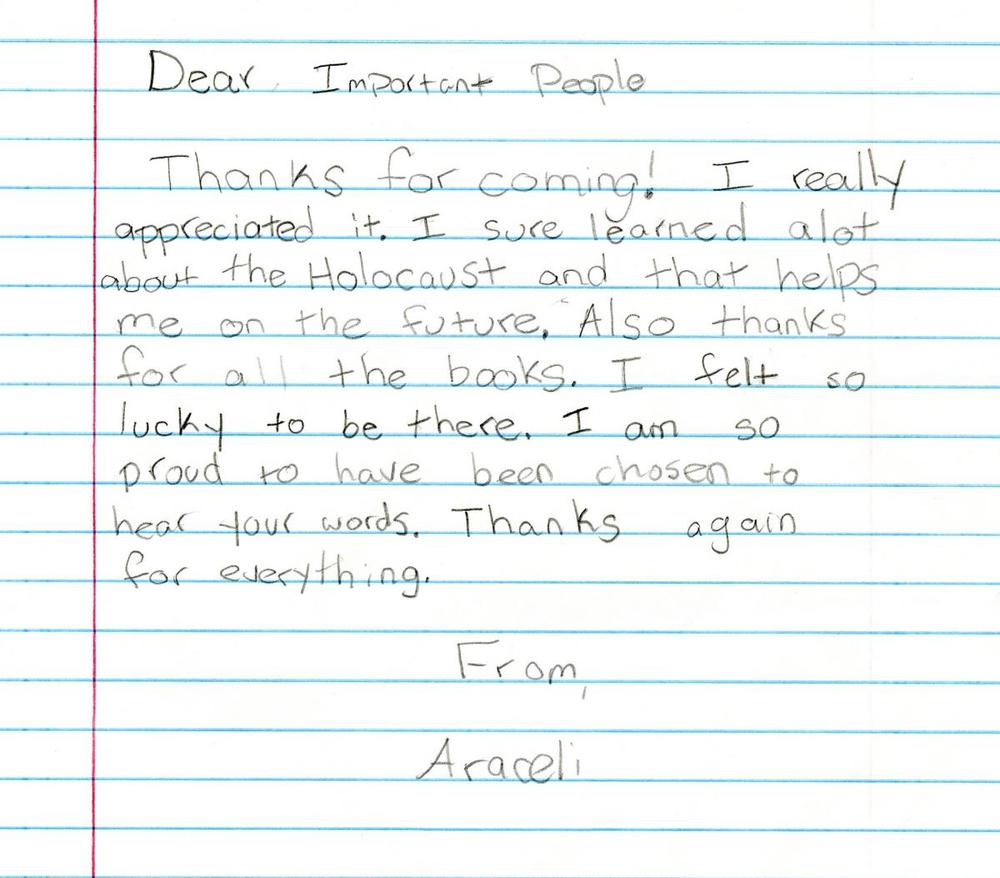 Dear Important People
Thanks for coming! I really
appreciated it. I sure learned alot
about the Holocaust and that helps
me on the future. Also thanks
for all the books. I felt so
lucky to be there. I am so
proud to have been chosen to
hear your words. Thanks again
for everything.
From,
Araceli